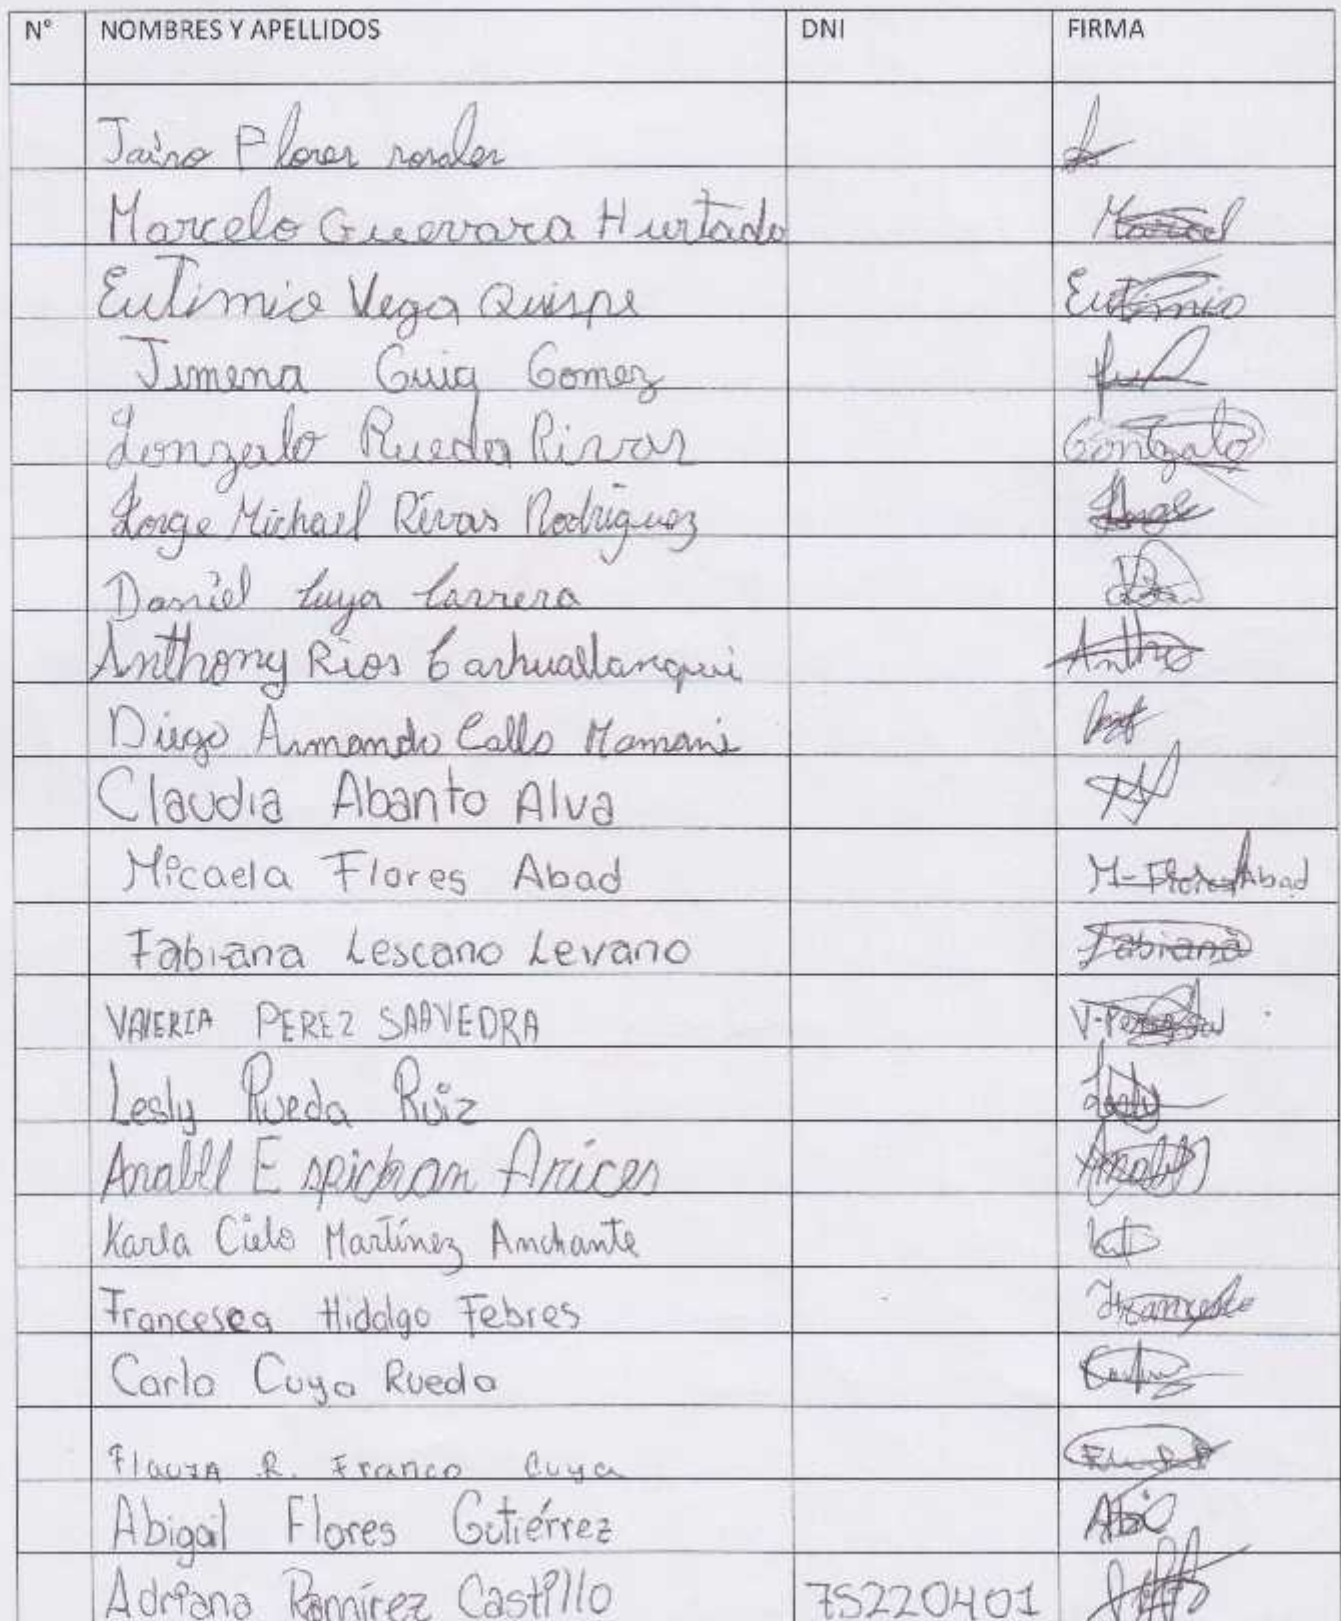 N° NOMBRES Y APELLIDOS DNI FIRMA
Jairo Flores rosales
Marcelo Guevara Hurtado
Eutimio Vega Quispe Eutimio
Jimena Guig Gomez
Gonzalo Rueda Rivas Gonzalo
Jorge Michael Rivas Rodriguez Jorge
Daniel Cuya Carrera
Anthony Rios Carhuallanqui Antho
Diego Armando Callo Mamani
Claudia Abanto Alva
Micaela Flores Abad M-Flores Abad
Fabiana Lescano Levano Fabiana
VALERIA PEREZ SAAVEDRA
Lesly Rueda Ruiz Lesly
Arabll Espichan Anices
Karla Cielo Martínez Anchante
Francesca Hidalgo Febres
Carla Cuya Rueda
R. Franco Cuya
Abigail Flores Gutiérrez Abi
Adriana Ramírez Castillo 75220401